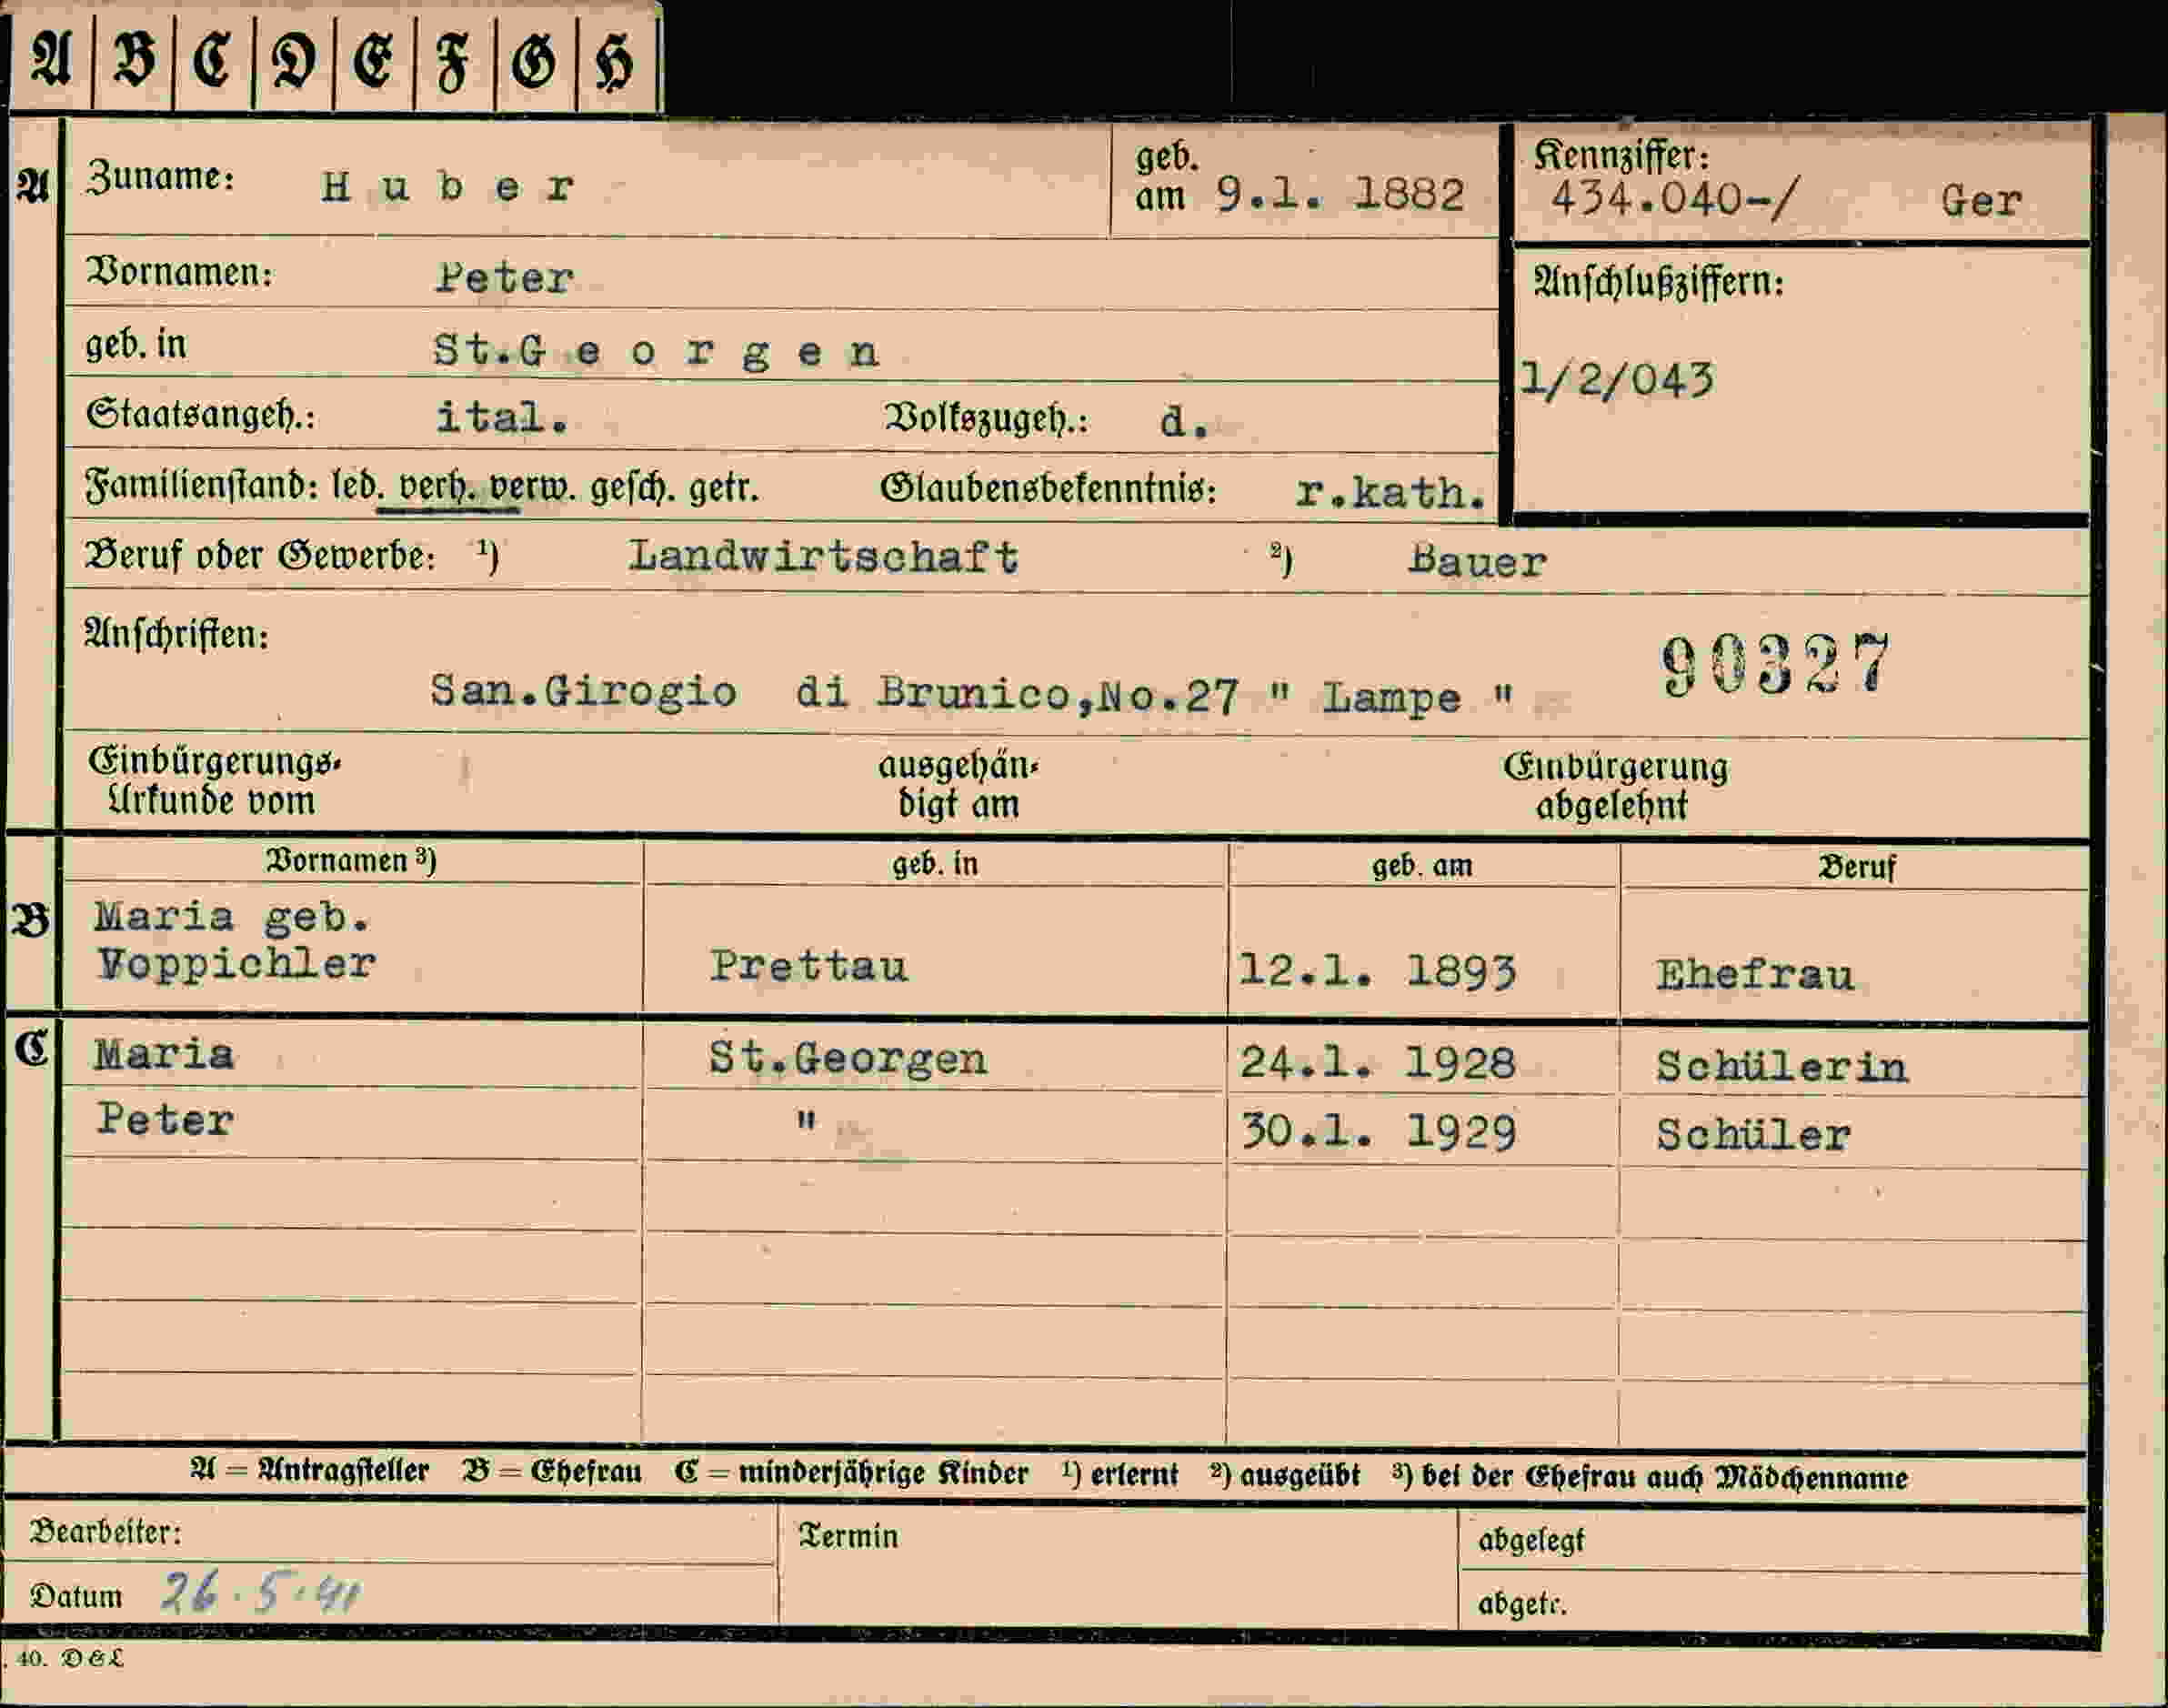 A B C D E F G H
A Zuname: H u b e r geb. am 9.1. 1882 Kennziffer: 434.040-/ Ger
Vornamen: Peter
Anschlußziffern:
geb. in St.G e o r g e n
1/2/043
Staatsangeh.: ital. Volkszugeh.: d.
Familienstand: led. verh. verw. gesch. getr. Glaubensbekenntnis: r.kath.
Beruf oder Gewerbe: ¹) Landwirtschaft ²) Bauer
Anschriften:
San.Girogio di Brunico,No.27 " Lampe " 90327
Einbürgerungs- ausgehän- Einbürgerung
Urkunde vom digt am abgelehnt
Vornamen ³) geb. in geb. am Beruf
B Maria geb.
Voppichler Prettau 12.1. 1893 Ehefrau
C Maria St.Georgen 24.1. 1928 Schülerin
Peter " 30.1. 1929 Schüler
A = Antragsteller B = Ehefrau C = minderjährige Kinder ¹) erlernt ²) ausgeübt ³) bei der Ehefrau auch Mädchenname
Bearbeiter: Termin abgelegt
Datum 26.5.41 abgetr.
. 40. D & L